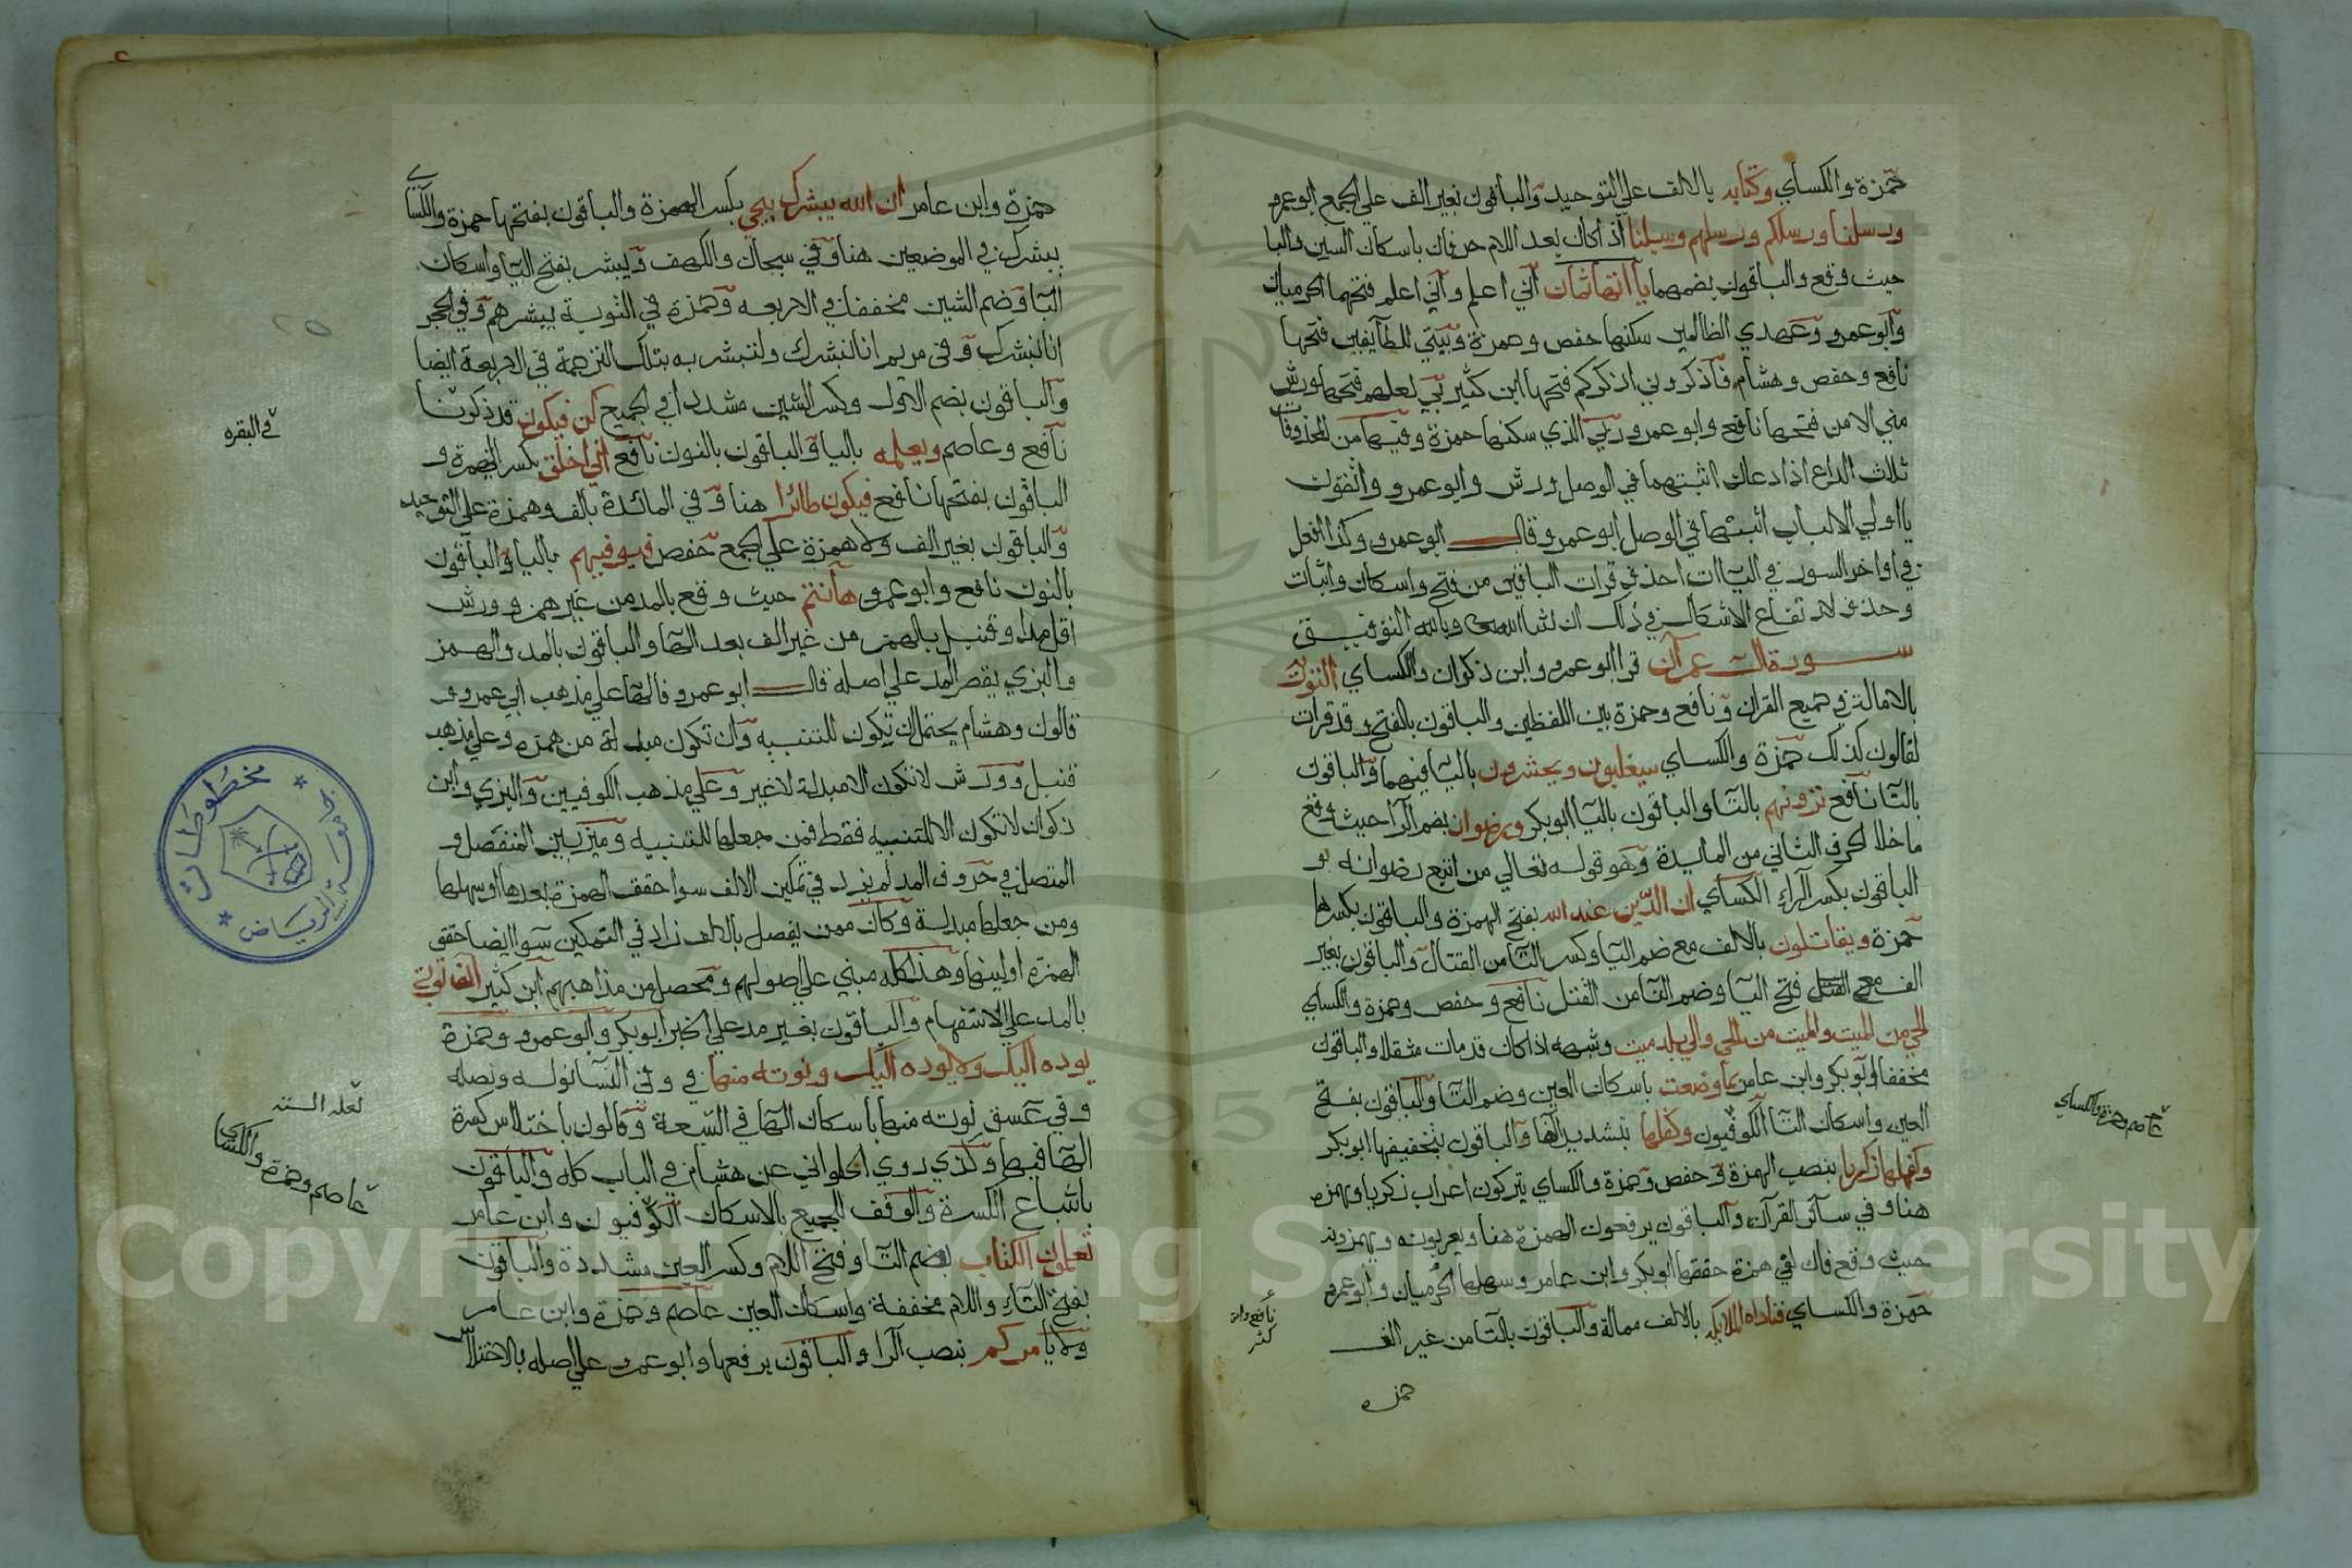 حمزة والكساي وكتابه بالالف علي التوحيد والباقون بغير الف علي الجمع ابوعمرو
ورسلنا ورسلكم ورسلهم وسبلنا اذا كان بعد اللام حرفان باسكان السين والبا
حيث وقع والباقون بضمهما ياآتها ثمان اني اعلم واني اعلم فتحهما الحرميان
وابو عمرو وعهدي الظالمين سكنها حفص وحمزة وبيتي للطايفين فتحها
نافع وحفص وهشام فاذكروني اذكركم فتحها ابن كثير بي لعلهم فتحها ورش
مني الا من فتحها نافع وابو عمرو ربي الذي سكنها حمزة وفيها من المحذوفات
ثلاث الداع اذا دعان اثبتهما في الوصل ورش وابو عمرو واتقون
يااولي الالباب اثبتها في الوصل ابو عمرو قال ابو عمرو وكذا افعل
في اواخر السور في الياات احذف قرات الباقين من فتح واسكان واثبات
وحذف لارتفاع الاشكال في ذلك ان شا الله وبالله التوفيق
سورة ال عمران قرا ابو عمرو وابن ذكوان والكساي التورية
بالامالة في جميع القران ونافع وحمزة بين اللفظين والباقون بالفتح وقد قرات
لقالون كذلك حمزة والكساي سيغلبون ويحشرون باليا فيهما والباقون
بالتا نافع ترونهم بالتا والباقون باليا ابو بكر ورضوان بضم الرا حيث وقع
ما خلا الحرف الثاني من المايدة وهو قوله تعالي من اتبع رضوانه و
الباقون بكسر الراء الكساي ان الدين عند الله بفتح الهمزة والباقون بكسرها
حمزة ويقاتلون بالالف مع ضم اليا وكسر التا من القتال والباقون بغير
الف مع فتح اليا وضم التا من القتل نافع وحفص وحمزة والكساي
الحي من الميت والميت من الحي والي بلد ميت وشبهه اذا كان قد مات مثقلا والباقون
مخففا ابو بكر وابن عامر بما وضعت باسكان العين وضم التا والباقون بفتح
العين واسكان التا الكوفيون وكفلها بتشديد الفا والباقون بتخفيفها ابو بكر
وكفلها زكريا بنصب الهمزة وحفص وحمزة والكساي يتركون اعراب زكريا وهمزه
هنا وفي سائر القرآن والباقون يرفعون الهمزة هنا ويعربونه ويهمزونه
حيث وقع فان لقي همزة حققها ابو بكر وابن عامر وسهلها الحرميان وابو عمرو
حمزة والكساي فناداه الملايكه بالالف ممالة والباقون بالتا من غير الف
حمزه
عاصم وحمزة والكساي
نافع وابن
كثر
حمزة وابن عامر ان الله يبشرك بيحي بكسر الهمزة والباقون بفتحها حمزة والكساي
يبشرك في الموضعين هنا وفي سبحان والكهف ويبشر بفتح اليا واسكان
البا وضم الشين مخففا في الاربعه وحمزة في التوبة يبشرهم وفي الحجر
انا نبشرك وفي مريم انا نبشرك ولتبشر به بتلك الترجمة في الاربعة ايضا
والباقون بضم الاول وكسر الشين مشددا في الجميع كن فيكون قد ذكرنا
نافع وعاصم ويعلمه باليا والباقون بالنون نافع اني اخلق بكسر الهمزة و
الباقون بفتحها نافع فيكون طائرا هنا وفي المائدة بالف وهمزة علي التوحيد
والباقون بغير الف ولا همزة علي الجمع حفص فيوفيهم باليا والباقون
بالنون نافع وابو عمرو هاأنتم حيث وقع بالمد من غير همز وورش
اقل مدا وقنبل بالهمز من غير الف بعد الها والباقون بالمد والهمز
والبزي يقصر المد علي اصله قال ابو عمرو فالها علي مذهب ابي عمرو و
قالون وهشام يحتمل ان تكون للتنبيه وان تكون مبدلة من همزه وعلي مذهب
قنبل وورش لا تكون الا مبدلة لا غير وعلي مذهب الكوفيين والبزي وابن
ذكوان لا تكون الا للتنبيه فقط فمن جعلها للتنبيه وميز بين المنفصل و
المتصل في حروف المد لم يزد في تمكين الالف سوا حقق الهمزة بعدها او سهلها
ومن جعلها مبدلة وكان ممن يفصل بالالف زاد في التمكين سوا ايضا حقق
الهمزه او لينها وهذا كله مبني علي اصولهم ومحصل من مذاهبهم ابن كثير الف توتي
بالمد علي الاستفهام والباقون بغير مد علي الخبر ابو بكر وابو عمرو وحمزة
يوده اليك ولا يوده اليك ونوته منها في وفي النسا نوله ونصله
وفي عسق نوته منها باسكان الها في السبعة وقالون باختلاس كسرة
الها فيها وكذي روي الحلواني عن هشام في الباب كله والباقون
باشباع الكسرة والوقف للجميع بالاسكان الكوفيون وابن عامر
تعلمون الكتاب بضم التا وفتح اللام وكسر العين مشددة والباقون
بفتح التاء واللام مخففة واسكان العين عاصم وحمزة وابن عامر
ولا يامركم بنصب الرا والباقون يرفعها وابو عمرو علي اصله بالاختلاس
في البقره
لعله الستة
عاصم وحمزة والكساي
مخطوطات
جامعة الرياض
٢٥
Copyright © King Saud University
1957